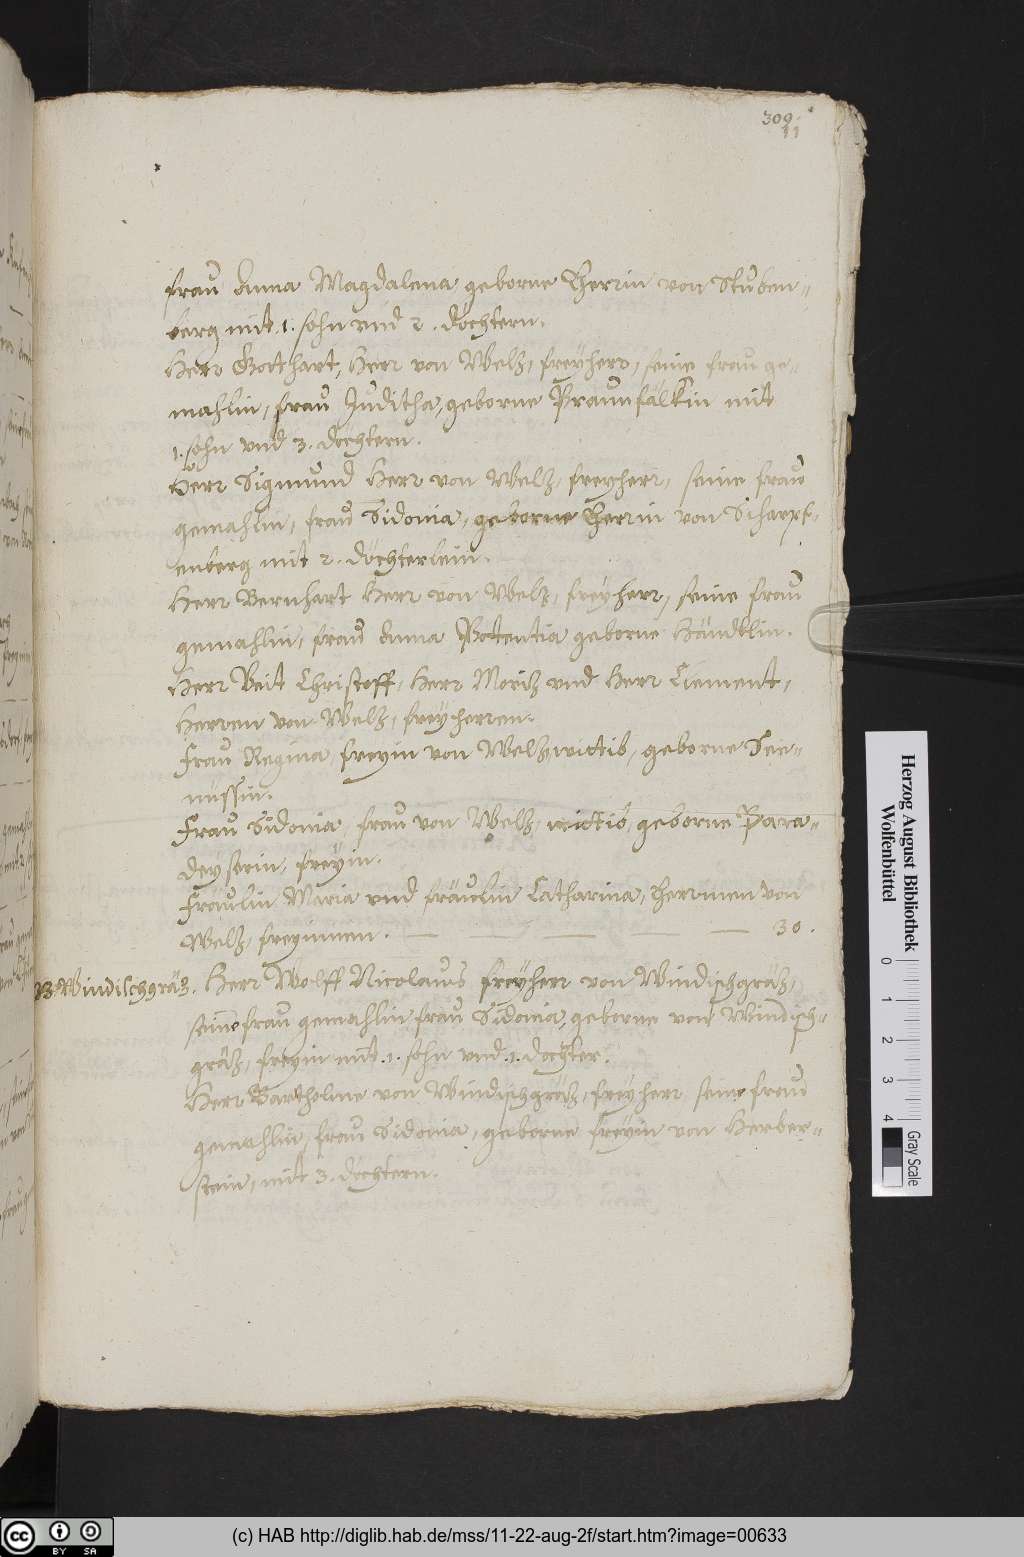 309.
11
frau Anna Magdalena geborne Herrin von Stuben-
berg mit 1. sohn vnd 2. döchtern.
Herr Gotthart, Herr von Welz, freyherr, seine frau ge-
mahlin, frau Juditha, geborne Braunfälkin mit
1. sohn vnd 3. döchtern.
Herr Sigmund Herr von Welz, freyherr, seine frau
gemahlin, frau Sidonia, geborne Herrin von Scharpf-
enberg mit 2. döchterlein.
Herr Bernhart Herr von Welz, freyherr, seine frau
gemahlin, frau Anna Potentia geborne Händtlin.
Herr Veit Christoff, Herr Moriz vnd Herr Clement,
Herren von Welz, freyherren.
Frau Regina, freyin von Welz, wittib, geborne
nussin.
Frau Sidonia, frau von Welz, wittib, geborne Para-
deyserin, freyin.
Fräulin Maria vnd fräulin Catharina, Herrinen von
Welz, freyinnen. — — — — — 30.
13. Windischgräz. Herr Wolff Nicolaus freyherr von Windischgräz,
seine frau gemahlin frau Sidonia, geborne von Windisch-
gräz, freyin mit .1. sohn vnd .1. dochter.
Herr Bartholme von Windischgräz, freyherr seine frau
gemahlin, frau Sidonia, geborne freyin von Herber-
stein, mit 3. döchtern.
Herzog August Bibliothek
Wolfenbüttel
0 1 2 3 4
Gray Scale
(c) HAB http://diglib.hab.de/mss/11-22-aug-2f/start.htm?image=00633
cc BY SA